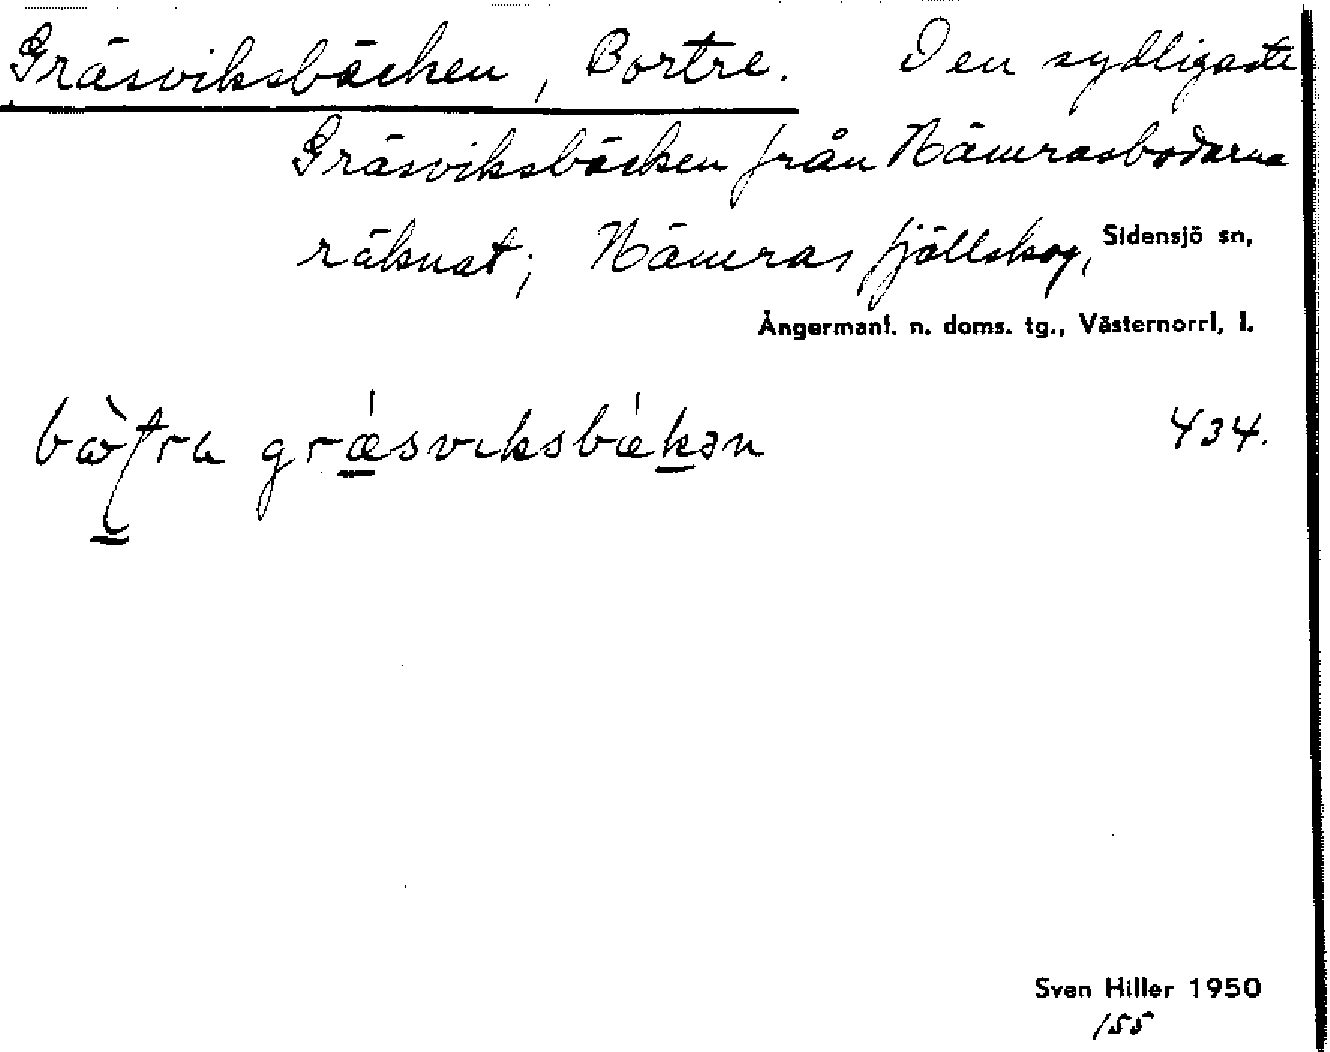 Gräsviksbäcken, Bortre. Den sydligaste
Gräsviksbäcken från Nämrasbodarna
räknat; Nämras fjällskog, Sidensjö sn,
Ångermanl. n. doms. tg., Västernorrl. l.
græsviksbækən 434.
Sven Hiller 1950
155